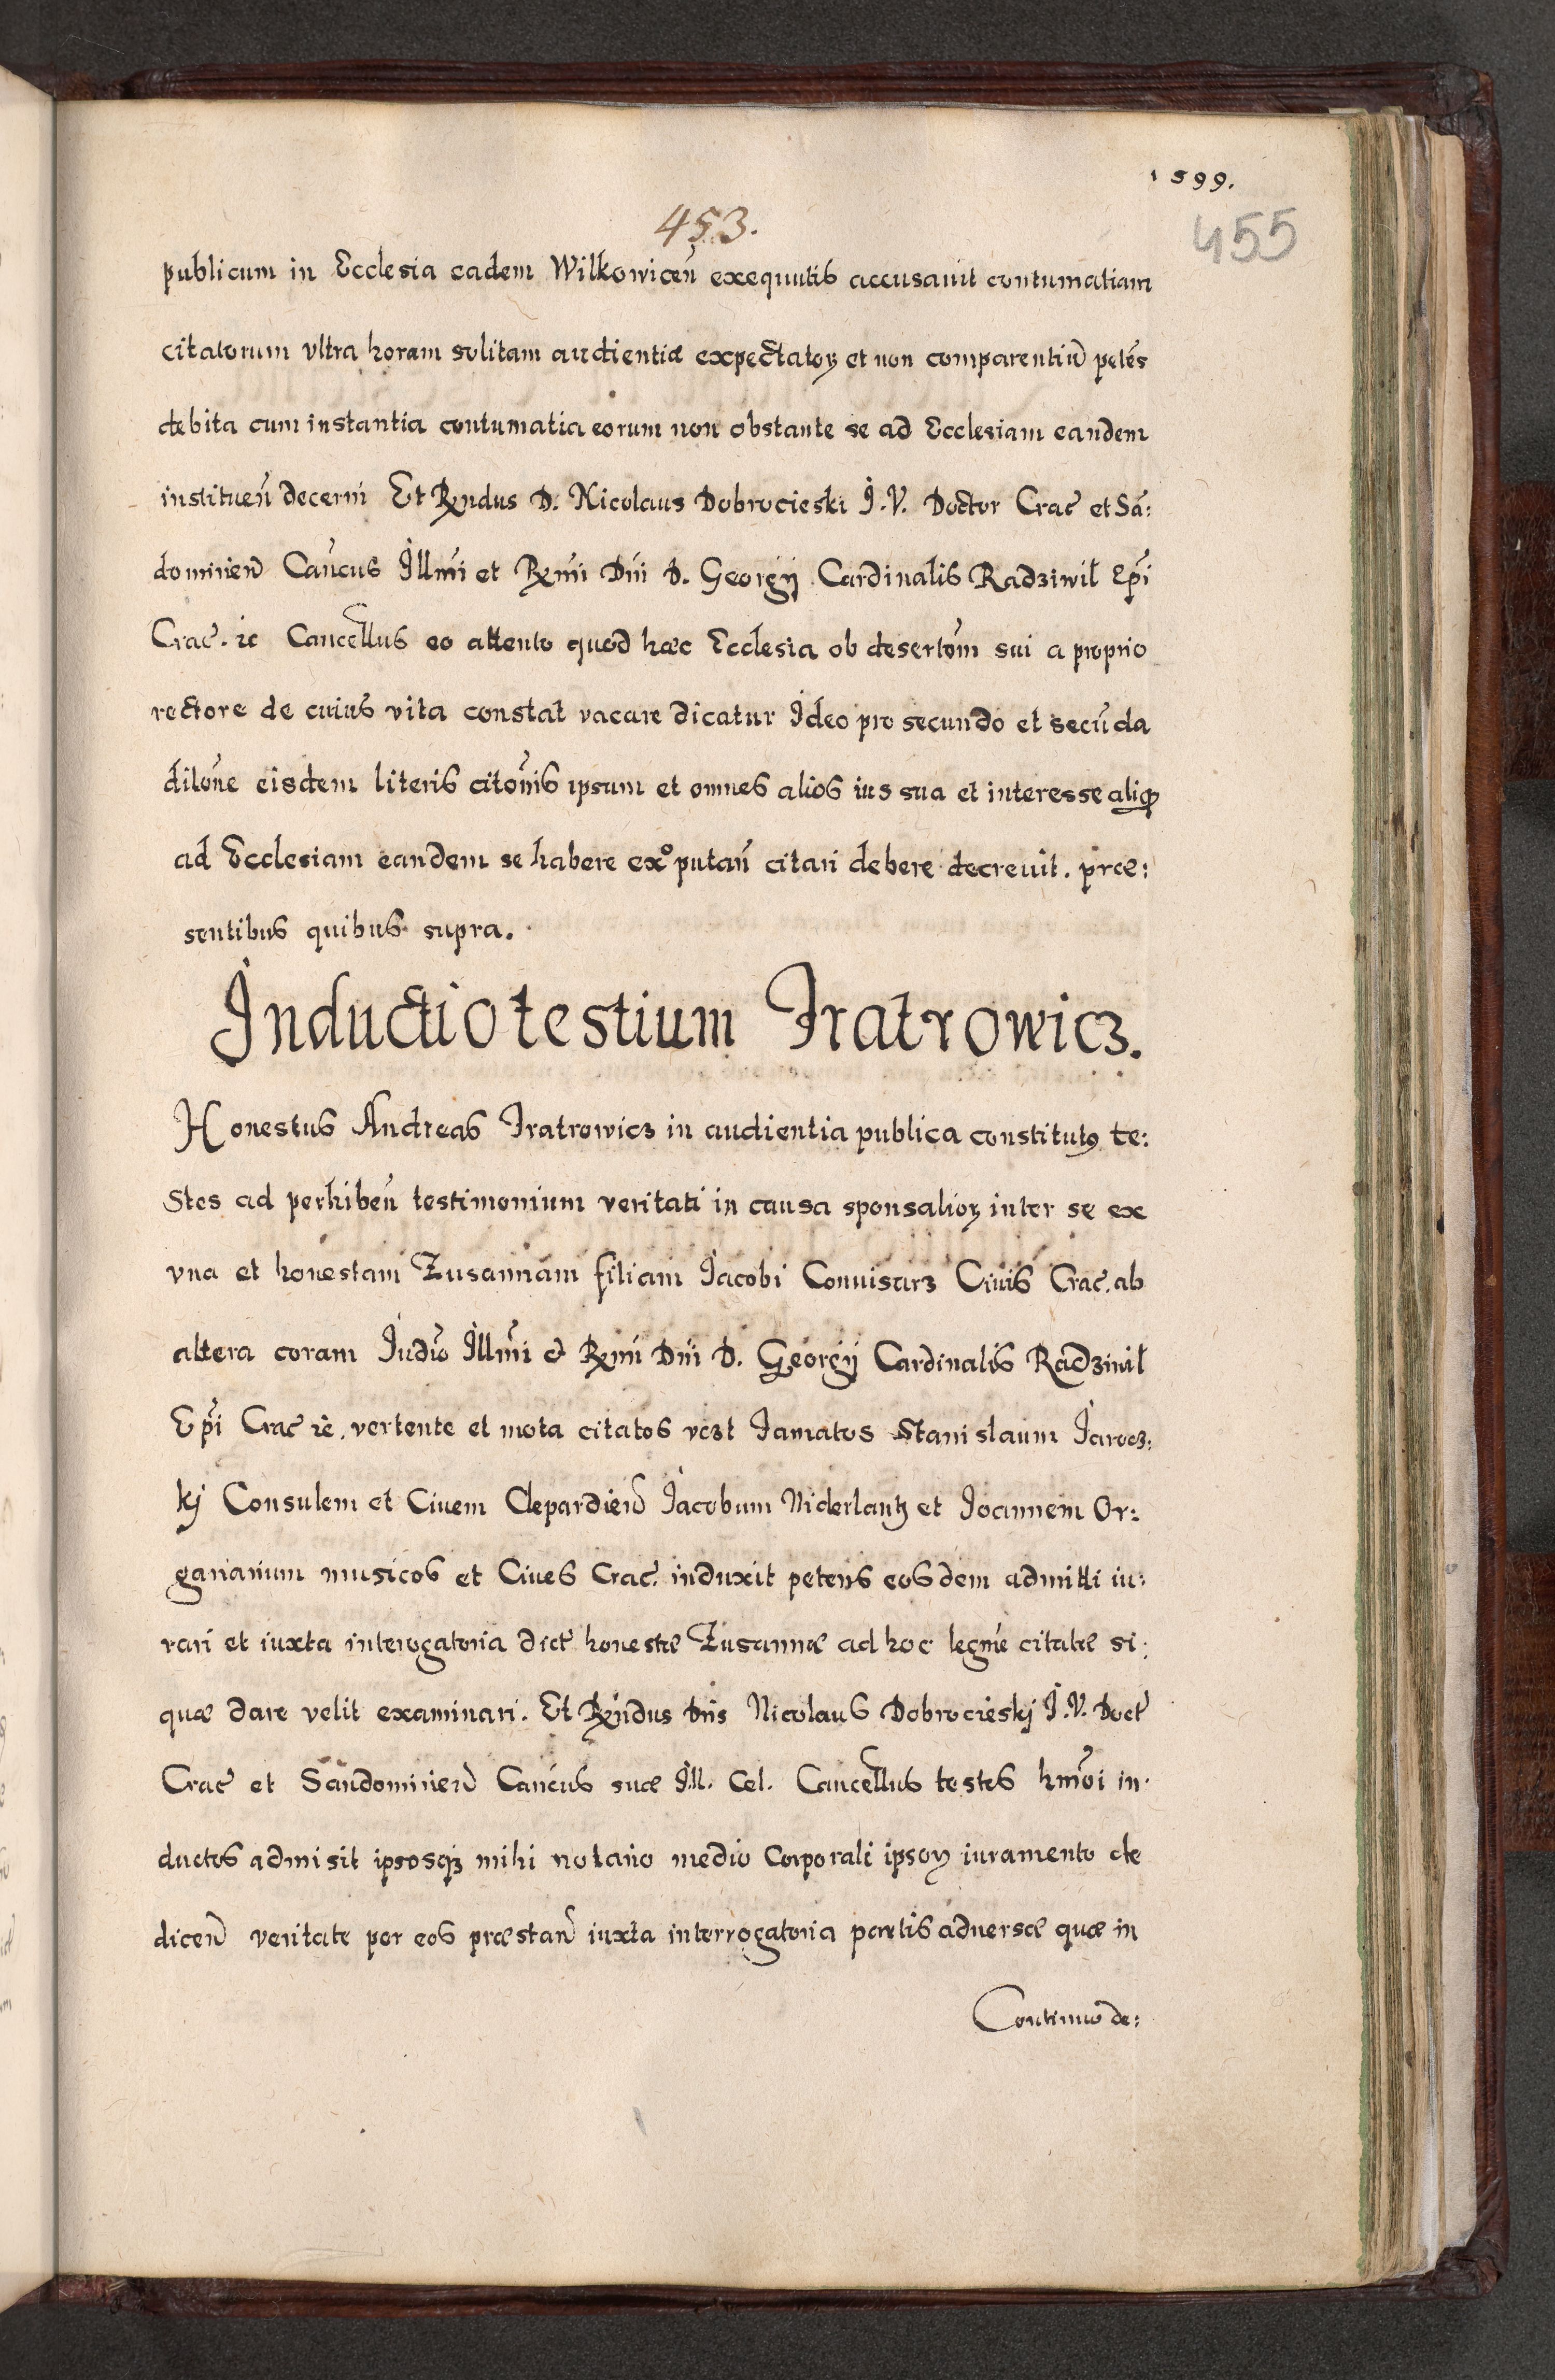 1599.
453.
455
publicum in Ecclesia eadem Wilkowicen̄ exequutis accusavit contumatiam
citatorum vltra horam solitam audientiæ expectatoꝝ et non comparentiū petēs
debita cum instantia contumatia eorum non obstante se ad Ecclesiam eandem
instituen̄ decerni Et Rndus D. Nicolaus Dobrocieski J.V. Doctor Crac̄ et Sā:
domirien̄ Can̄cus Illm̄i et Rm̄i Dn̄i D. Georgÿ Cardinalis Radziwil Ep̄i
Crac̄. ꝛc Cancellus eo attento quod hæc Ecclesia ob desertōm sui a proprio
rectore de cuius vita constat vacare dicatur Ideo pro secundo et secūda
dilōne eisdem literis citōnis ipsum et omnes alios ius sua et interesse aliqꝫ
ad Ecclesiam eandem se habere exº putan̄ citari debere decrevit. præ:
sentibus quibus supra.
Inductio testium Jratrowicz.
Honestus Andreas Jratrowicz in audientia publica constitutꝰ te:
stes ad perhiben̄ testimonium veritati in causa sponsalioꝝ inter se ex
vna et honestam Zusannam filiam Jacobi Conuisarz Ciuis Crac̄. ab
altera coram Judio Illm̄i & Rm̄i Dn̄i D. Georgÿ Cardinalis Radziwil
Ep̄i Crac̄ ꝛc. vertente et mota citatos vczt Jamatos Stanislaum Jarocz:
kj Consulem et Ciuem Clepardien̄ Jacobum Niderlantz et Joannem Or:
ganarium musicos et Ciues Crac̄. induxit petens eosdem admitti iu:
rari et iuxta interogatoria dict̄ honestæ Zusannæ ad hoc legm̄e citatæ si:
quæ dare velit examinari. Et Rn̄dus Dn̄s Nicolaus Dobrocieskj J.V. Doct̄
Crac̄ et Sandomirien̄ Can̄cus suæ Ill. Cel. Cancellus testes hm̄oi in:
ductos admisit ipsosqꝫ mihi notario medio corporali ipsoꝝ iuramento de
dicen̄ veritate per eos præstan̄ iuxta interrogatoria partis aduersæ quæ in
Continuo de: